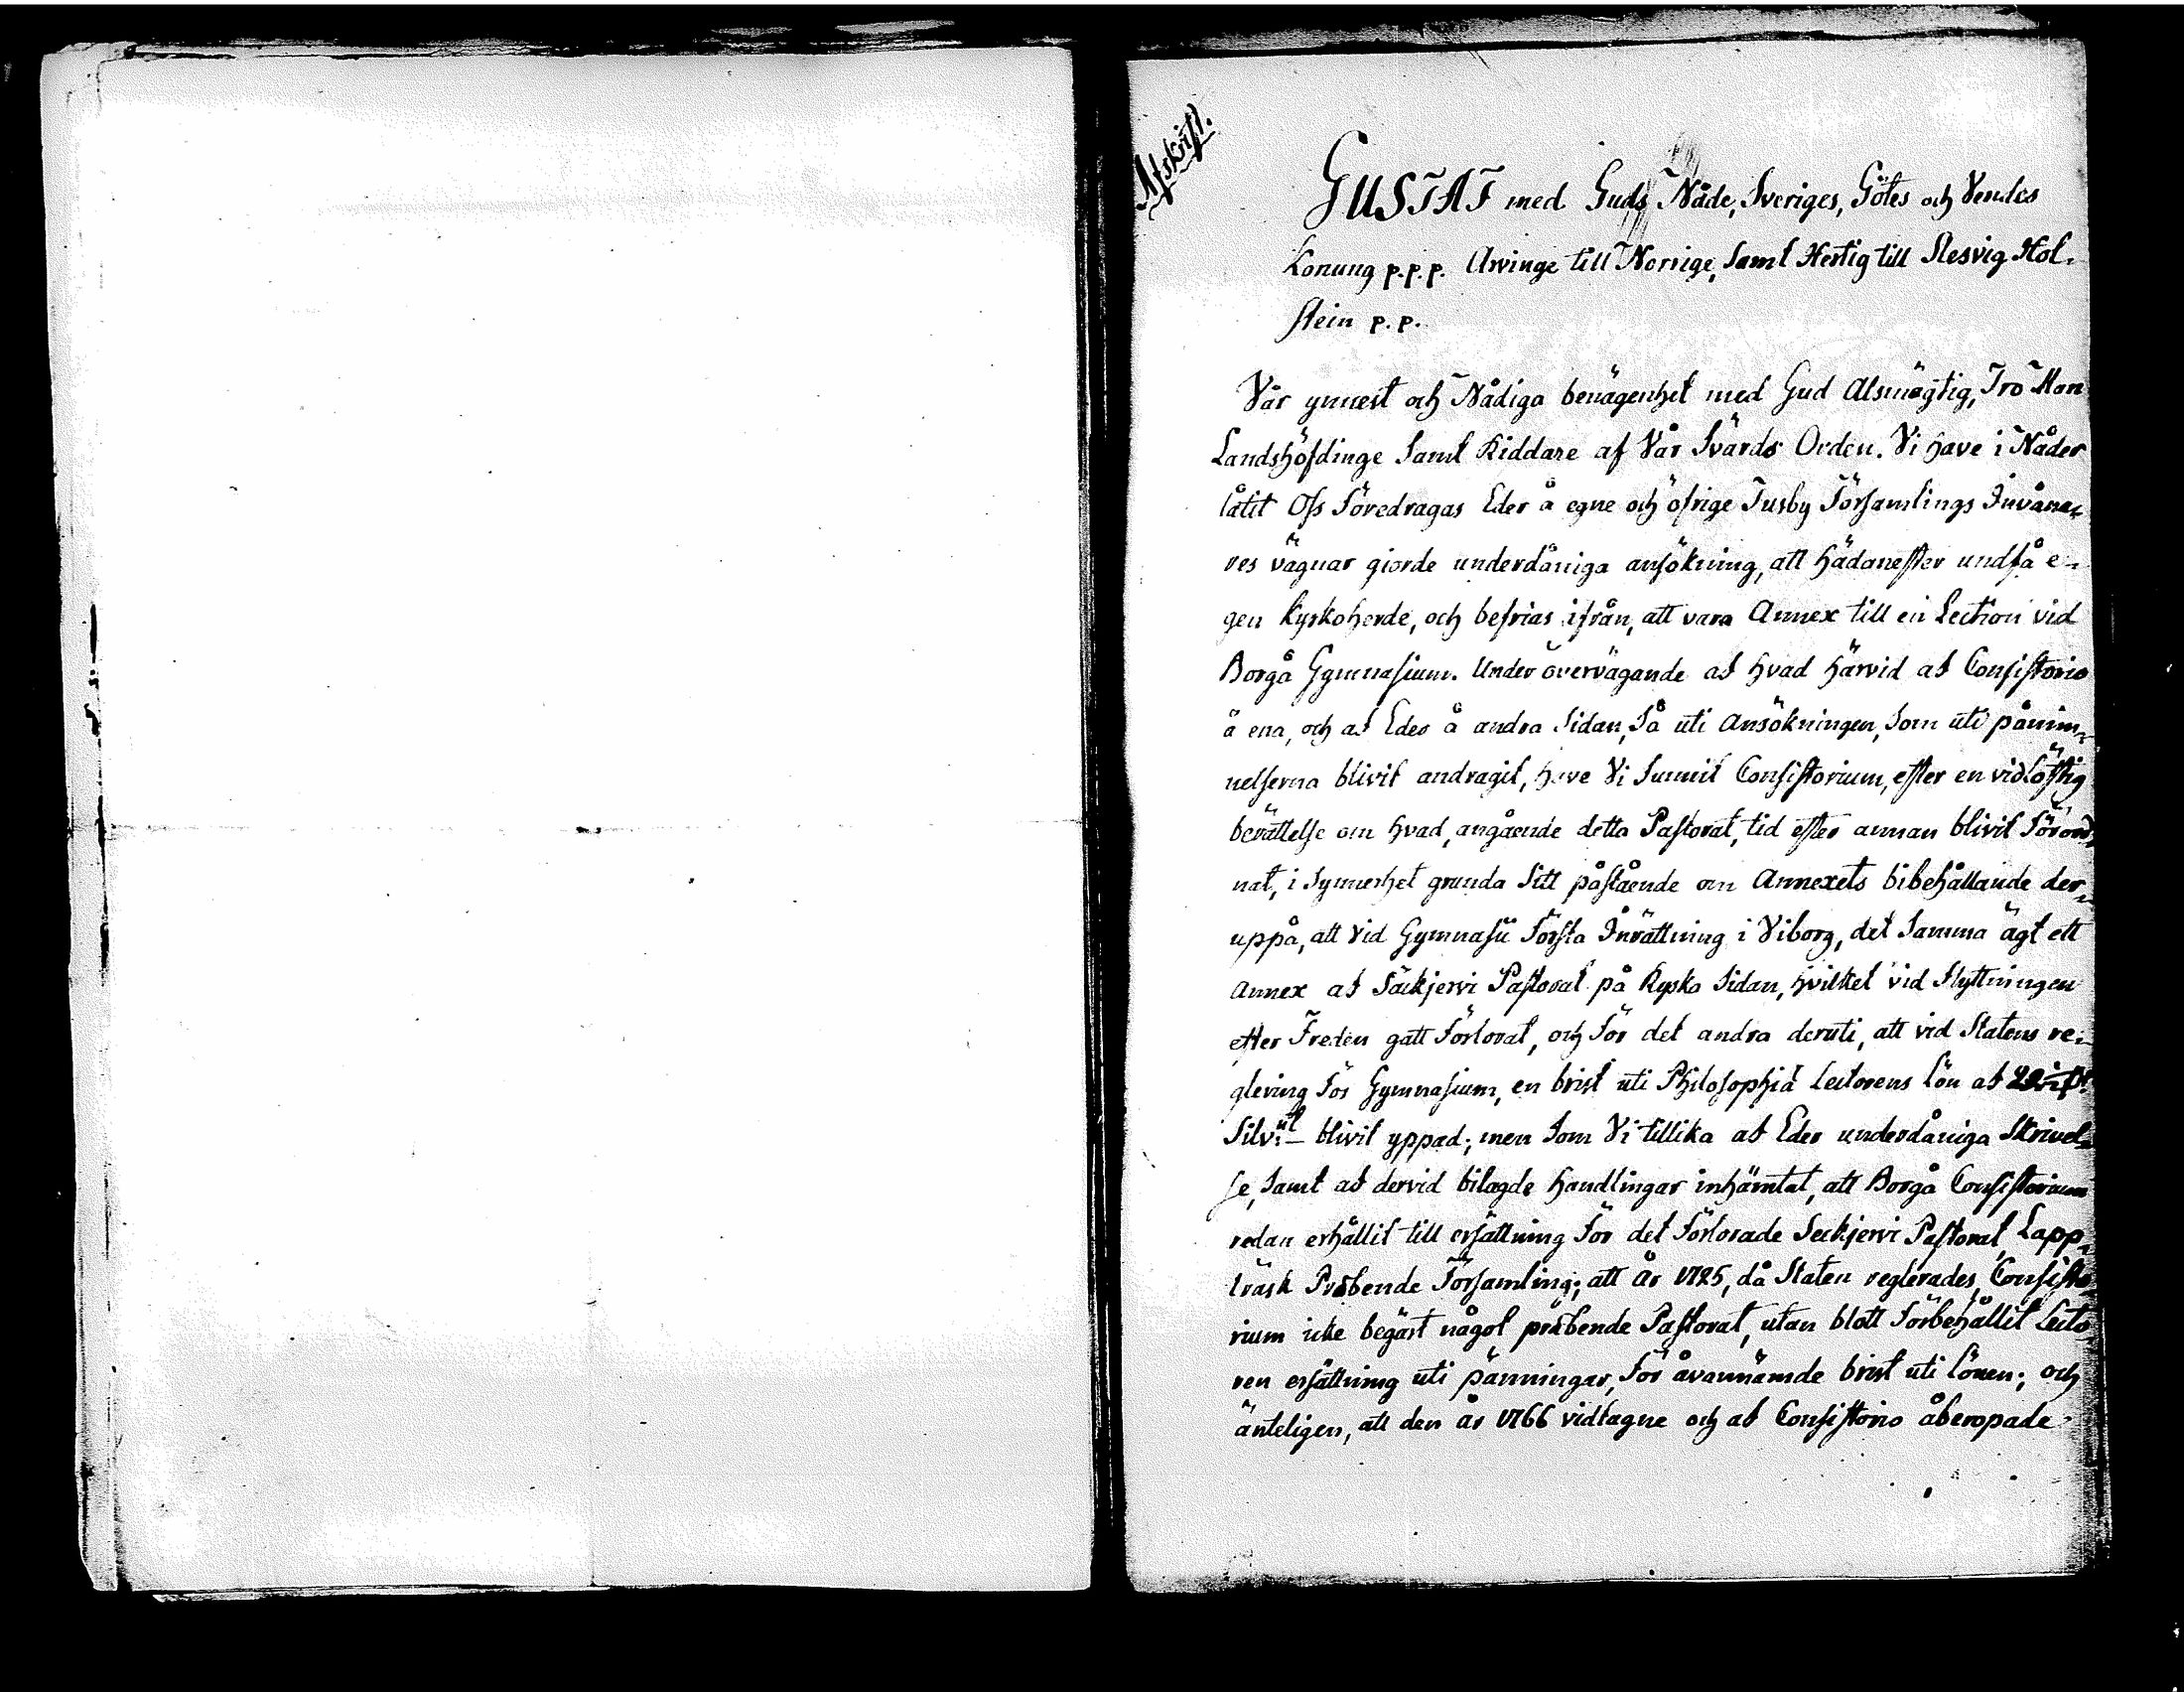 Afskrift.
GUSTAF med Guds Nåde, Sveriges, Götes och Vendes
Konung p.p.p. Arvinge till Norrige, Samt Hertig till Slesvig Hol-
stein p.p.
Vår ynnest och Nådiga benägenhet med Gud Alsmägtig, Tro Man
Landshöfdinge Samt Riddare af Vår Svärds Orden. Vi have i Nåder
låtit Oss Föredragas Eder å egne och öfrige Tusby Församlings Invåna-
res vägnar giorde underdåniga ansökning, att hädanefter undfå e-
gen Kyrkoherde, och befrias ifrån, att vara Annex till en Lection vid
Borgå Gymnasium. Under övervägande af hvad härvid af Consistorio
å ena, och af Eder å andra Sidan, Så uti Ansökningen, Som uti påmin-
nelserna blivit andragit, have Vi Funnit Consistorium, efter en vidlöftig
berättelse om hvad, angående detta Pastorat, tid efter annan blivit Förord-
nat, i Synnerhet grunda Sitt påstående om Annexets bibehållande der-
uppå, att vid Gymnasii Första Inrättning i Viborg, det Samma ägt ett
Annex af Säckjervi Pastorat på Ryska Sidan, hvilket vid Flyttningen
efter Freden gått Förlorat, och För det andra deruti, att vid Statens re-
glering För Gymnasium, en brist uti Philosophiæ Lectorens lön af
Silv: mt blivit yppad; men Som Vi tillika af Eder underdåniga Skrivel-
se, Samt af dervid bilagde Handlingar inhämtat, att Borgå Consistorium
redan erhållit till ersättning För det Förlorade Seckjervi Pastorat, Lapp-
träsk Præbende Församling; att år 1725, då Staten reglerades, Consisto-
rium icke begärt något præbende Pastorat, utan blott Förbehållit Lecto-
ren ersättning uti pänningar, För åvannämde brist uti lönen; och
änteligen, att den år 1766 vidtagne och af Consistorio åberopade